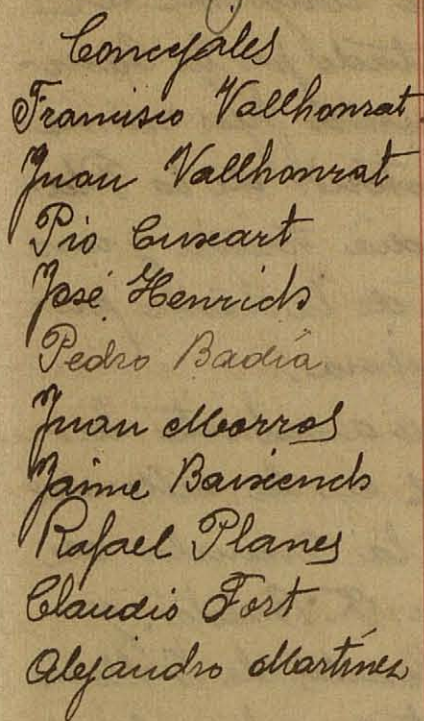 Concejales
Francisco Vallhonrat
Juan Vallhonrat
Pío Cuxart
José Henrich
Pedro Badía
Juan Morros
Jaime Baixench
Rafael Planes
Claudio Fort
Alejandro Martínez